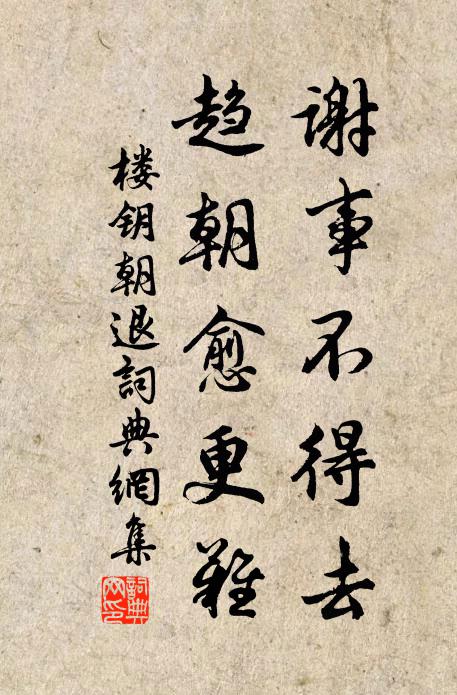 谢事不得去
趋朝愈更难
楼钥朝退詞典網集
詞典
网印